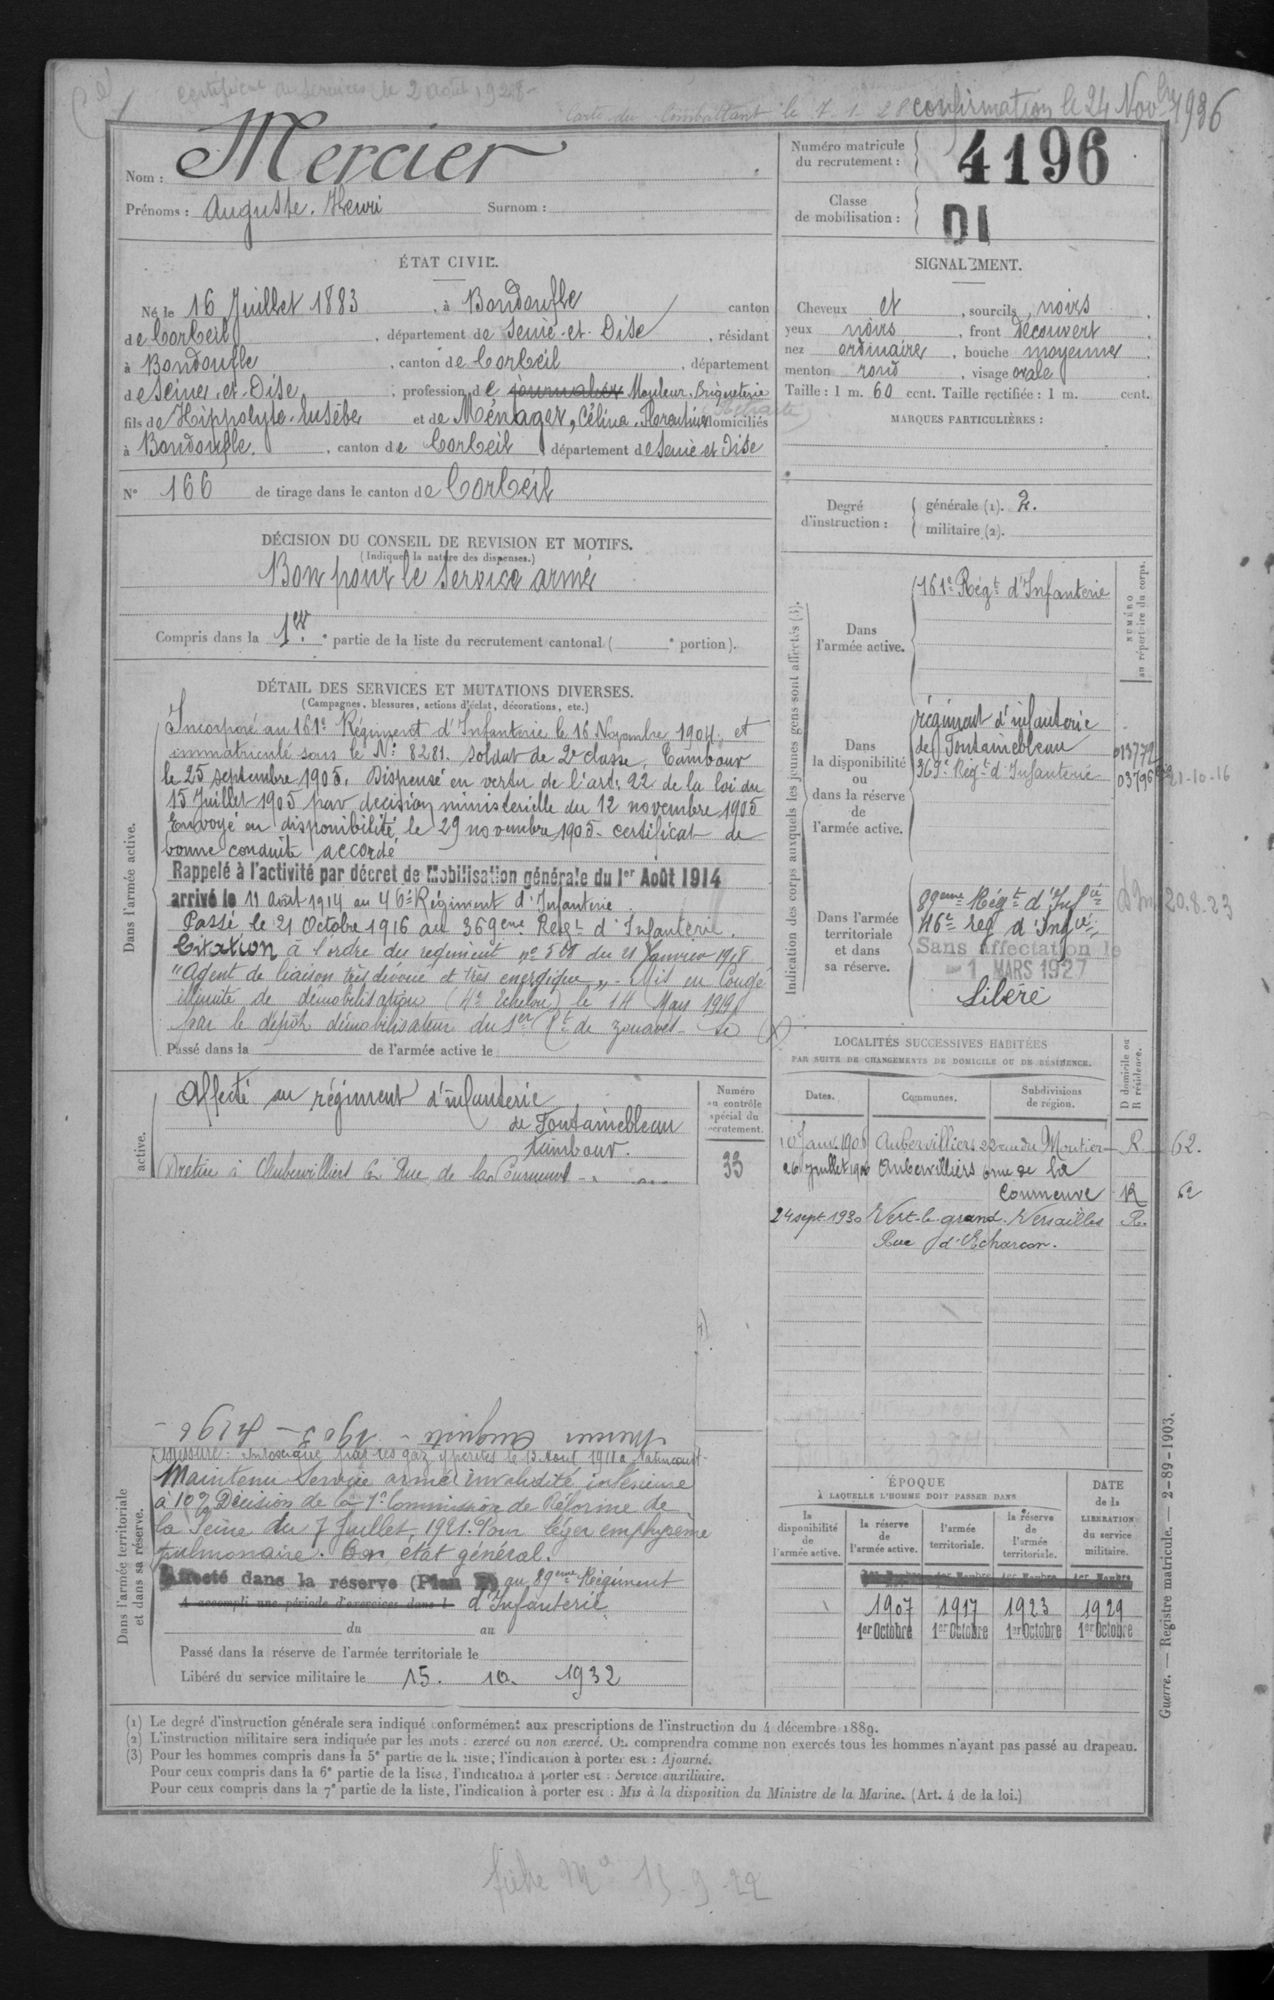 Certificat de Services le 2 août 1928
Carte du Combattant le 7-1-28 confirmation le 24 Novbre 1936
Nom : Mercier
Prénoms : Auguste. Henri Surnom :
Numéro matricule du recrutement : 4196
Classe de mobilisation : 01
ÉTAT CIVIL.
Né le 16 Juillet 1883, à Bondoufle canton
de Corbeil, département de Seine-et-Oise, résidant
à Bondoufle, canton de Corbeil, département
de Seine-et-Oise, profession de journalier Mouleur. Briqueterie
fils de Hippolyte Eusèbe et de Ménager, Célina Florentine domiciliés
à Bondoufle, canton de Corbeil département de Seine et Oise
N° 166 de tirage dans le canton de Corbeil
DÉCISION DU CONSEIL DE REVISION ET MOTIFS.
(Indiquer la nature des dispenses.)
Bon pour le service armé
Compris dans la 1re partie de la liste du recrutement cantonal ( e portion).
DÉTAIL DES SERVICES ET MUTATIONS DIVERSES.
(Campagnes, blessures, actions d'éclat, décorations, etc.)
Dans l'armée active.
Incorporé au 161e Régiment d'Infanterie le 16 Novembre 1904, et
immatriculé sous le N° 8281. soldat de 2e classe, Tambour
le 25 septembre 1905. Dispensé en vertu de l'art. 22 de la loi du
15 Juillet 1905 par décision ministérielle du 12 novembre 1905
Envoyé en disponibilité le 29 novembre 1905. certificat de
bonne conduite accordé
Rappelé à l'activité par décret de Mobilisation générale du 1er Août 1914
arrivé le 11 août 1914 au 46e Régiment d'Infanterie.
Passé le 21 Octobre 1916 au 369eme Regt d'Infanterie.
Citation à l'ordre du regiment n° du 21 Janvier 1918
"Agent de liaison très devoué et très energique". Mis en Congé
illimité de démobilisation (4e Echelon) le 14 Mars 1919
par le dépôt démobilisateur du 1er Rt de zouaves
Passé dans la de l'armée active le
active.
Affecté au régiment d'infanterie
de Fontainebleau
tambour.
se retire à Aubervilliers 62 Rue de la Courneuve
Numéro au contrôle spécial du recrutement.
33
Dans l'armée territoriale et dans sa réserve.
Blessure : Intoxiqué par les gaz ypérités le 13 Aout 1918 a
Maintenu Service armé invalidité inférieure
à 10% Décision de la 1e Commission de Réforme de
la Seine du 7 Juillet 1921. Pour léger emphysème
pulmonaire. Bon état général.
Affecté dans la réserve (Plan ) au 89eme Régiment
A accompli une période d'exercices dans l d'Infanterie
du au
Passé dans la réserve de l'armée territoriale le
Libéré du service militaire le 15. 10. 1932
SIGNALEMENT.
Cheveux et, sourcils noirs
yeux noirs, front découvert
nez ordinaire, bouche moyenne
menton rond, visage ovale
Taille : 1 m. 60 cent. Taille rectifiée : 1 m. cent.
MARQUES PARTICULIÈRES :
Degré d'instruction : générale (1). 2.
militaire (2).
Indication des corps auxquels les jeunes gens sont affectés (3).
NUMÉRO au répertoire du corps.
Dans l'armée active.
161e Régt d'Infanterie
Dans la disponibilité ou dans la réserve de l'armée active.
régiment d'infanterie
de Fontainebleau 013772
369e Régt d'Infanterie 03796 21-10-16
Dans l'armée territoriale et dans sa réserve.
89eme Régt d'Infie 20.8.23
46e reg d'Infie
Sans affectation le
1 MARS 1927
Libéré
LOCALITÉS SUCCESSIVES HABITÉES
PAR SUITE DE CHANGEMENTS DE DOMICILE OU DE RÉSIDENCE.
Dates. Communes. Subdivisions de région. D domicile ou R résidence.
10 Janv. 1906 Aubervilliers 22 rue du Moutier R 62.
26 Juillet 1906 Aubervilliers rue de la
Courneuve R 62
24 sept. 1930 Vert-le-grand. Versailles R.
Rue d'Echarcon.
ÉPOQUE
À LAQUELLE L'HOMME DOIT PASSER DANS
la disponibilité de l'armée active. la réserve de l'armée active. l'armée territoriale. la réserve de l'armée territoriale. DATE de la LIBÉRATION du service militaire.
1907 1917 1923 1929
1er Octobre 1er Octobre 1er Octobre 1er Octobre
(1) Le degré d'instruction générale sera indiqué conformément aux prescriptions de l'instruction du 4 décembre 1889.
(2) L'instruction militaire sera indiquée par les mots : exercé ou non exercé. On comprendra comme non exercés tous les hommes n'ayant pas passé au drapeau.
(3) Pour les hommes compris dans la 5e partie de la liste, l'indication à porter est : Ajourné.
Pour ceux compris dans la 6e partie de la liste, l'indication à porter est : Service auxiliaire.
Pour ceux compris dans la 7e partie de la liste, l'indication à porter est : Mis à la disposition du Ministre de la Marine. (Art. 4 de la loi.)
Guerre. — Registre matricule. — 2-89-1903.
fiche 15 9 22